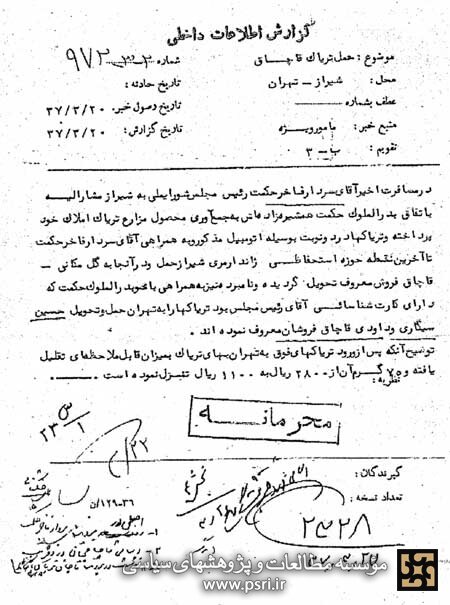 گزارش اطلاعات داخلی
موضوع : حمل تریاک قاچاق
شماره ۹۷۲
محل : شیراز – تهران
تاریخ حادثه :
عطف بشماره
تاریخ وصول خبر: ۳۷/۳/۲۰
منبع خبر : مامور ویژه
تاریخ گزارش: ۳۷/۳/۲۰
تقویم : ب – ۳
در مسافرت اخیر آقای سردار فاخر حکمت رئیس مجلس شورایملی به شیراز مشارالیه
با تفاق بدرالملوک حکمت همشیره زاده اش به جمع آوری محصول مزارع تریاک املاک خود
پرداخته و تریاکها در دو نوبت بوسیله اتومبیل مذکور و به همراهی آقای سردار فاخر حکمت
تا آخرین نقطه حوزه استحفاظی ژاندارمری شیراز حمل و در آنجا به گل مکانی –
قاچاق فروش معروف تحویل گردیده و نامبرده نیز به همراهی بانو بدرالملوک حکمت که
دارای کارت شناسائی آقای رئیس مجلس بود تریاکها را به تهران حمل و تحویل حسین
سیگاری و داودی قاچاق فروشان معروف نموده اند .
توضیح آنکه پس از ورود تریاکهای فوق به تهران بهای تریاک بمیزان قابل ملاحظه ای تقلیل
یافته و ۷۵ گرم آن از ۲۸۰۰ ریال به ۱۱۰۰ ریال تنزل نموده است .
نظریه :
محرمانه
گیرندگان :
تعداد نسخه :
۲۳۲۸
مؤسسه مطالعات و پژوهشهای سیاسی
www.psri.ir